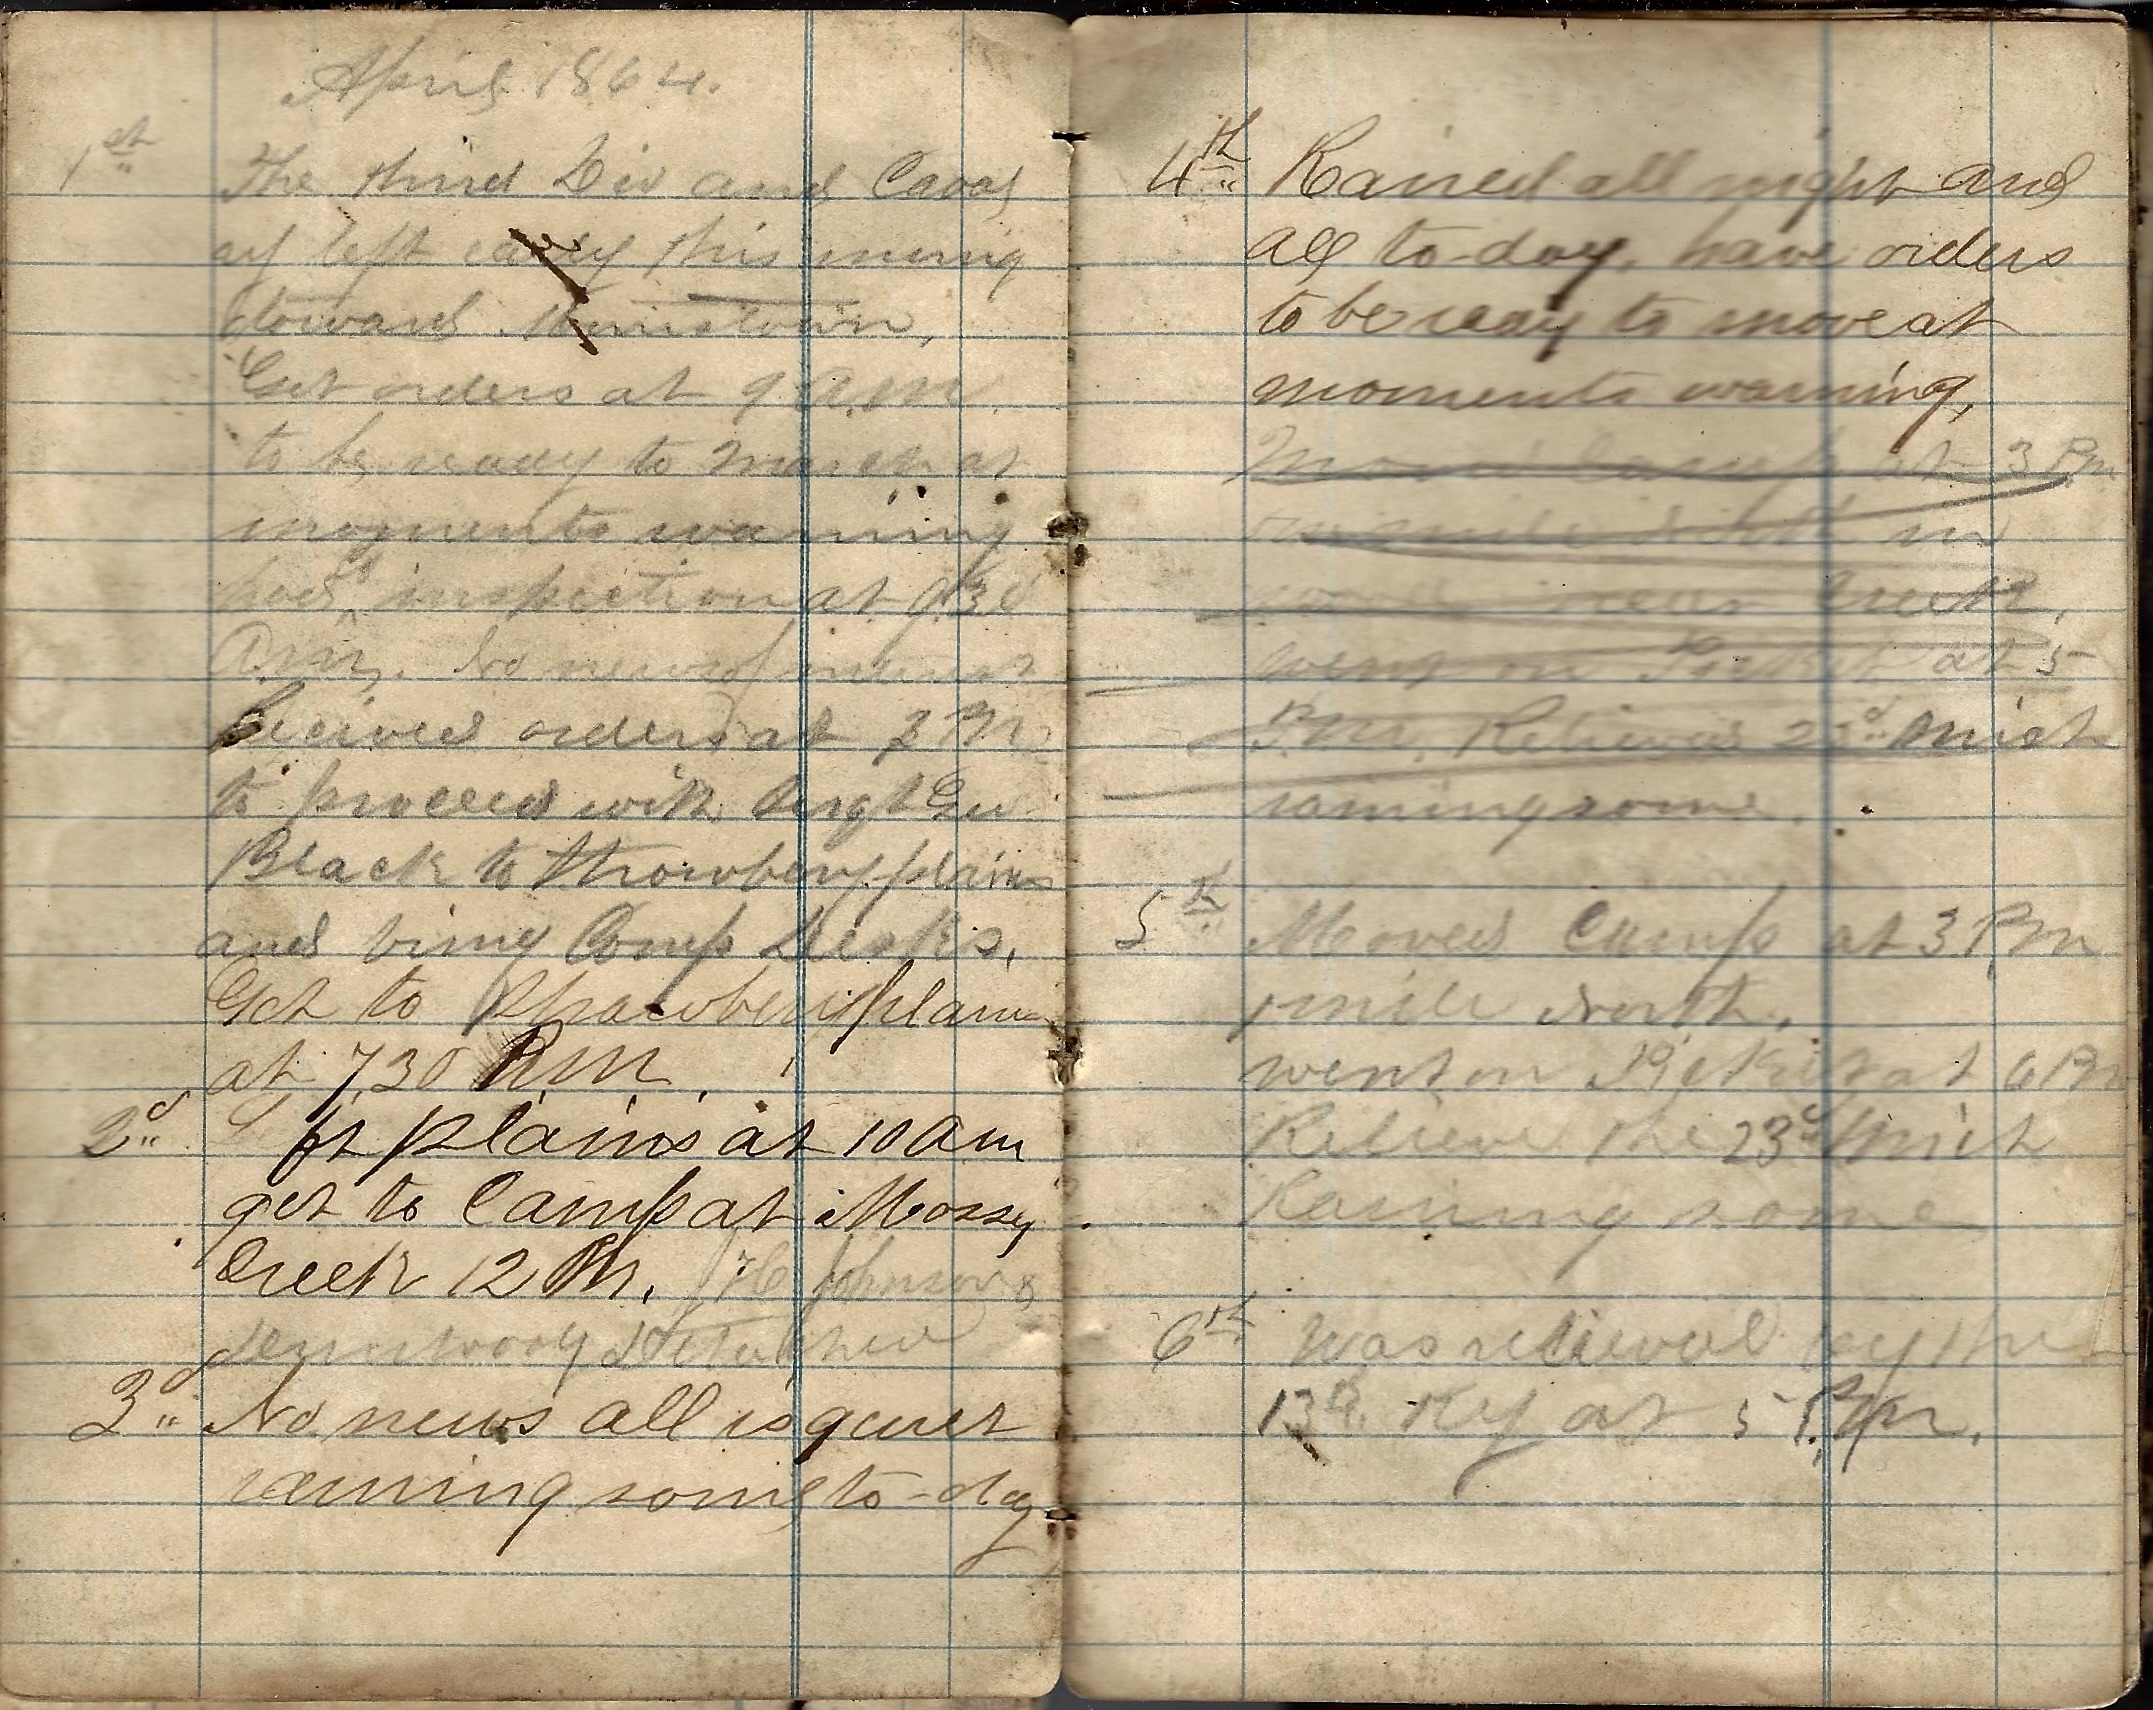 April 1864.
1st The third Div and Caval
ry left early this mornig
toward Morristown,
Get orders at 9 A.M.
to be ready to march at
moments warning
had inspection at 9.30
A.M. No news of interest
Recived orders at 3 PM
to proceed with Sergt Geo
Black to Strawbery plains
and bring Comp Desks.
Get to Strawbery plains
at 7,30 P.M.
2d Left plains at 10 am
get to Camp at Mossy
Creek 12 M. H C Johnson &
detached
3d No news all is quiet
raining some to-day
4th Rained all night and
all to-day, have orders
to be ready to move at
moments warning,
Moved Camp at 3 Pm
one mile North in
woods near Creek,
went on Picket at 5
P.M. Relieved 23d Mich
raining some.
5th Moved Camp at 3 Pm
1 mile North.
went on Picket at 6 Pm
Relieve the 23d Mich
Raining some
6th Was relieved by the
13th Ky at 5 P.m.